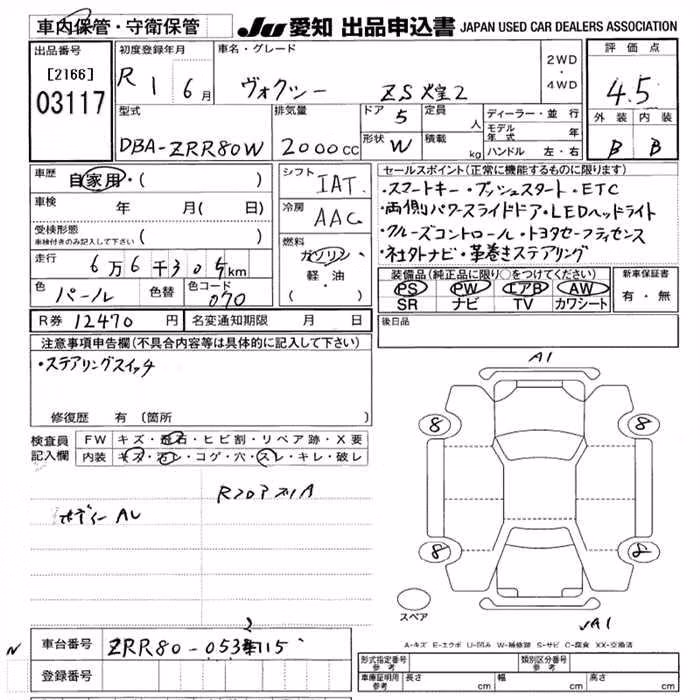 車内保管・守衛保管 JU 愛知 出品申込書 JAPAN USED CAR DEALERS ASSOCIATION
出品番号 初度登録年月 車名・グレード 評価点
[2166] 03117 R 1 6月 ヴォクシー ZS 煌2 2WD・4WD 4.5
型式 排気量 ドア 5 定員 人 ディーラー・並行 外装 内装
DBA-ZRR80W 2000cc 形状 W 積載 kg モデル年式 年 B B
ハンドル 左・右
車歴 自家用・( ) シフト IAT. セールスポイント(正常に機能するものに限ります)
車検 年 月( 日) 冷房 AAC ・スマートキー・プッシュスタート・ETC
受検形態 ・両側パワースライドドア・LEDヘッドライト
車検付きのみ記入して下さい ( ) 燃料 ・クルーズコントロール・トヨタセーフティセンス
走行 6万6千305km ガソリン ・社外ナビ・革巻きステアリング
色 パール 色替 色コード 070 軽・油 ・( )
装備品(純正品に限り○をつけてください) 新車保証書
PS PW エアB AW 有・無
SR ナビ TV カワシート
R券 12470 円 名変通知期限 月 日 後日品
注意事項申告欄(不具合内容等は具体的に記入して下さい)
・ステアリングスイッチ A1
修復歴 有(箇所 8 8
検査員記入欄 FW キズ・飛石・ヒビ割・リペア跡・X要
内装 キズ・汚レ・コゲ・穴・スレ・キレ・破レ
RフロアズリA
ボディーAU
8 8
スペア
A1
A-キズ E-エクボ U-凹み W-補修跡 S-サビ C-腐食 XX-交換済
N 車台番号 ZRR80-053 115
登録番号
形式指定番号 参考 類別区分番号 参考
車庫証明用 参考 長さ cm 幅 cm 高さ cm